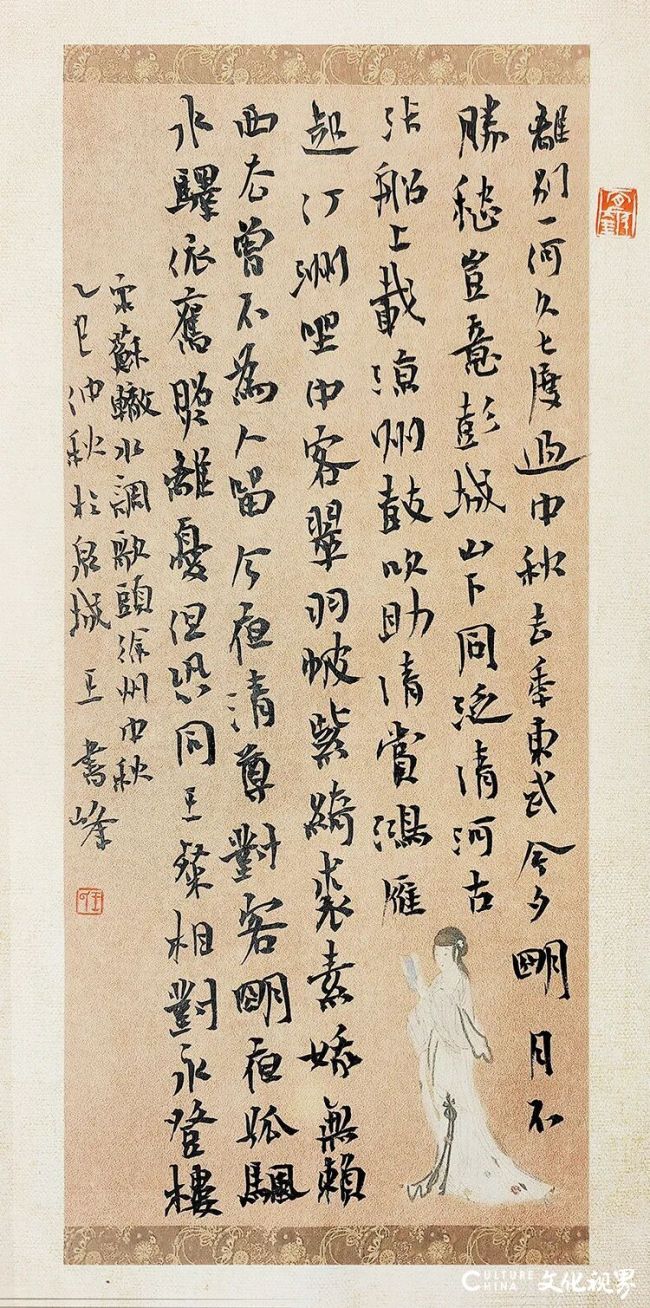 離别一何久七度過中秋去年東武今夕明月不
勝愁豈意彭城山下同泛清河古
汴船上載涼州鼓吹助清賞鴻雁
起汀洲坐中客翠羽帔紫綺裘素娥無賴
西去曾不為人留今夜清尊對客明夜孤颿
水驛依舊照離憂但恐同王粲相對永登樓
宋蘇轍水調歌頭徐州中秋
乙巳仲秋於泉城王書峰
CULTURE CHINA 文化视界